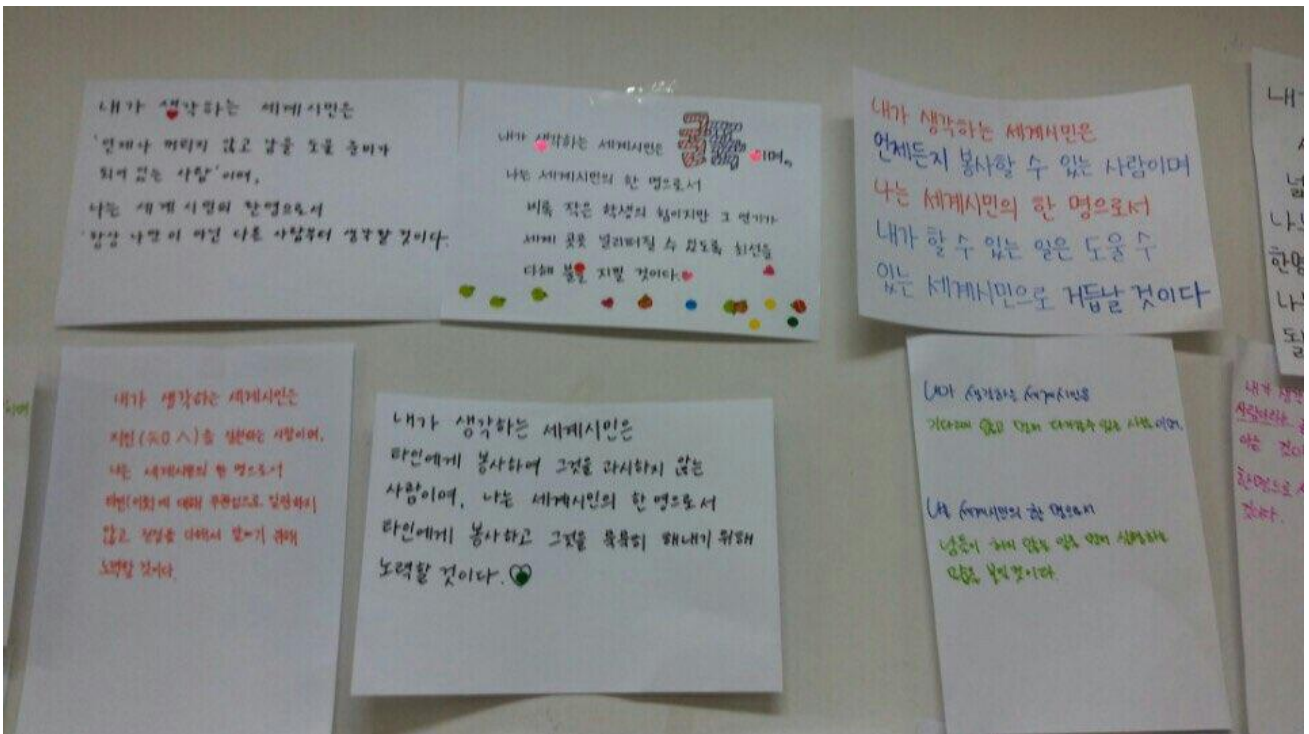 내가 생각하는 세계시민은
'언제나 꺼리지 않고 남을 도울 준비가
되어 있는 사람'이며,
나는 세계 시민의 한명으로서
'항상 나만이 아닌 다른 사람부터 생각할 것이다.
내가 생각하는 세계시민은 굴뚝이며,
나는 세계시민의 한 명으로서
비록 작은 학생의 힘이지만 그 연기가
세계 곳곳 널리퍼질 수 있도록 최선을
다해 불을 지필 것이다.
내가 생각하는 세계시민은
언제든지 봉사할 수 있는 사람이며
나는 세계시민의 한 명으로서
내가 할 수 있는 일은 도울 수
있는 세계시민으로 거듭날 것이다
내가 생각하는 세계시민은
사람이며,
나는 세계시민의 한 명으로서
에 대해 무관심으로 일관하지
않고 위해
노력할 것이다.
내가 생각하는 세계시민은
타인에게 봉사하여 그것을 과시하지 않는
사람이며, 나는 세계시민의 한 명으로서
타인에게 봉사하고 그것을 묵묵히 해내기 위해
노력할 것이다.
내가 생각하는 세계시민은
기다리지 않고 먼저 다가갈수 있는 사람이며,
나는 세계시민의 한 명으로서
남들이 하지 않는 일을 먼저 실천하는
모습을 보일것이다.